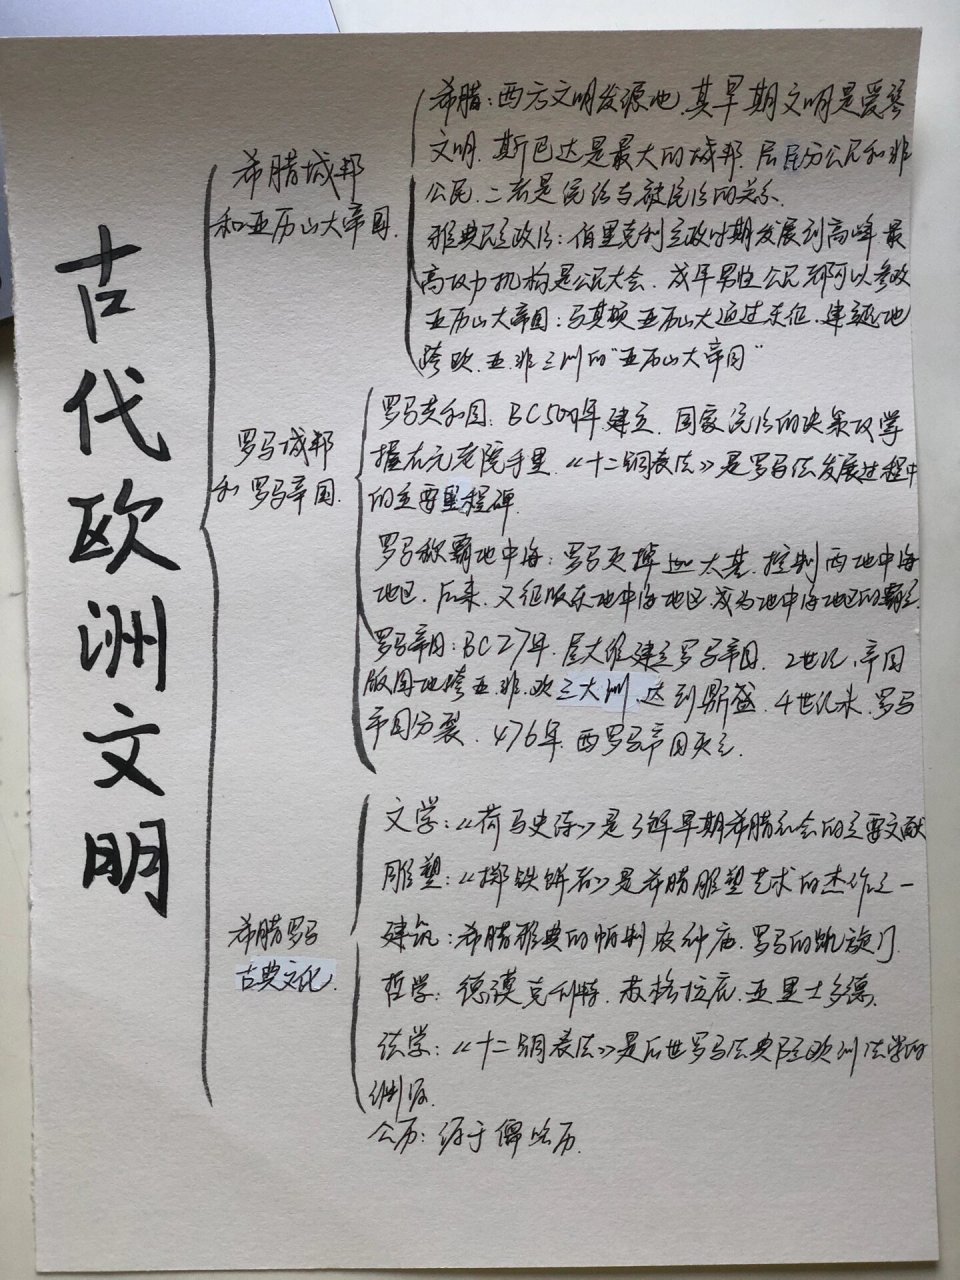 古代欧洲文明
希腊城邦
和亚历山大帝国.
希腊:西方文明发源地.其早期文明是爱琴
文明.斯巴达是最大的城邦.居民分公民和非
公民.二者是统治与被统治的关系.
雅典民主政治:伯里克利主政时期发展到高峰.最
高权力机构是公民大会.成年男性公民都可以参政
亚历山大帝国:马其顿亚历山大通过东征.建立起地
跨欧.亚.非三洲的“亚历山大帝国”
罗马城邦
和罗马帝国.
罗马共和国:BC509年建立.国家统治的决策权掌
握在元老院手里.《十二铜表法》是罗马法发展过程中
的主要里程碑.
罗马称霸地中海:罗马灭掉迦太基.控制西地中海
地区.后来.又征服东地中海地区.成为地中海地区的霸主.
罗马帝国:BC27年.屋大维建立罗马帝国.2世纪.帝国
版图地跨亚.非.欧三大洲.达到鼎盛.4世纪末.罗马
帝国分裂.476年.西罗马帝国灭亡.
希腊罗马
古典文化.
文学:《荷马史诗》是了解早期希腊社会的主要文献
雕塑:《掷铁饼者》是希腊雕塑艺术的杰作之一
建筑:希腊雅典的帕特农神庙.罗马的凯旋门.
哲学:德谟克利特.苏格拉底.亚里士多德.
法学:《十二铜表法》是后世罗马法典及欧洲法学的
渊源.
公历:源于儒略历.